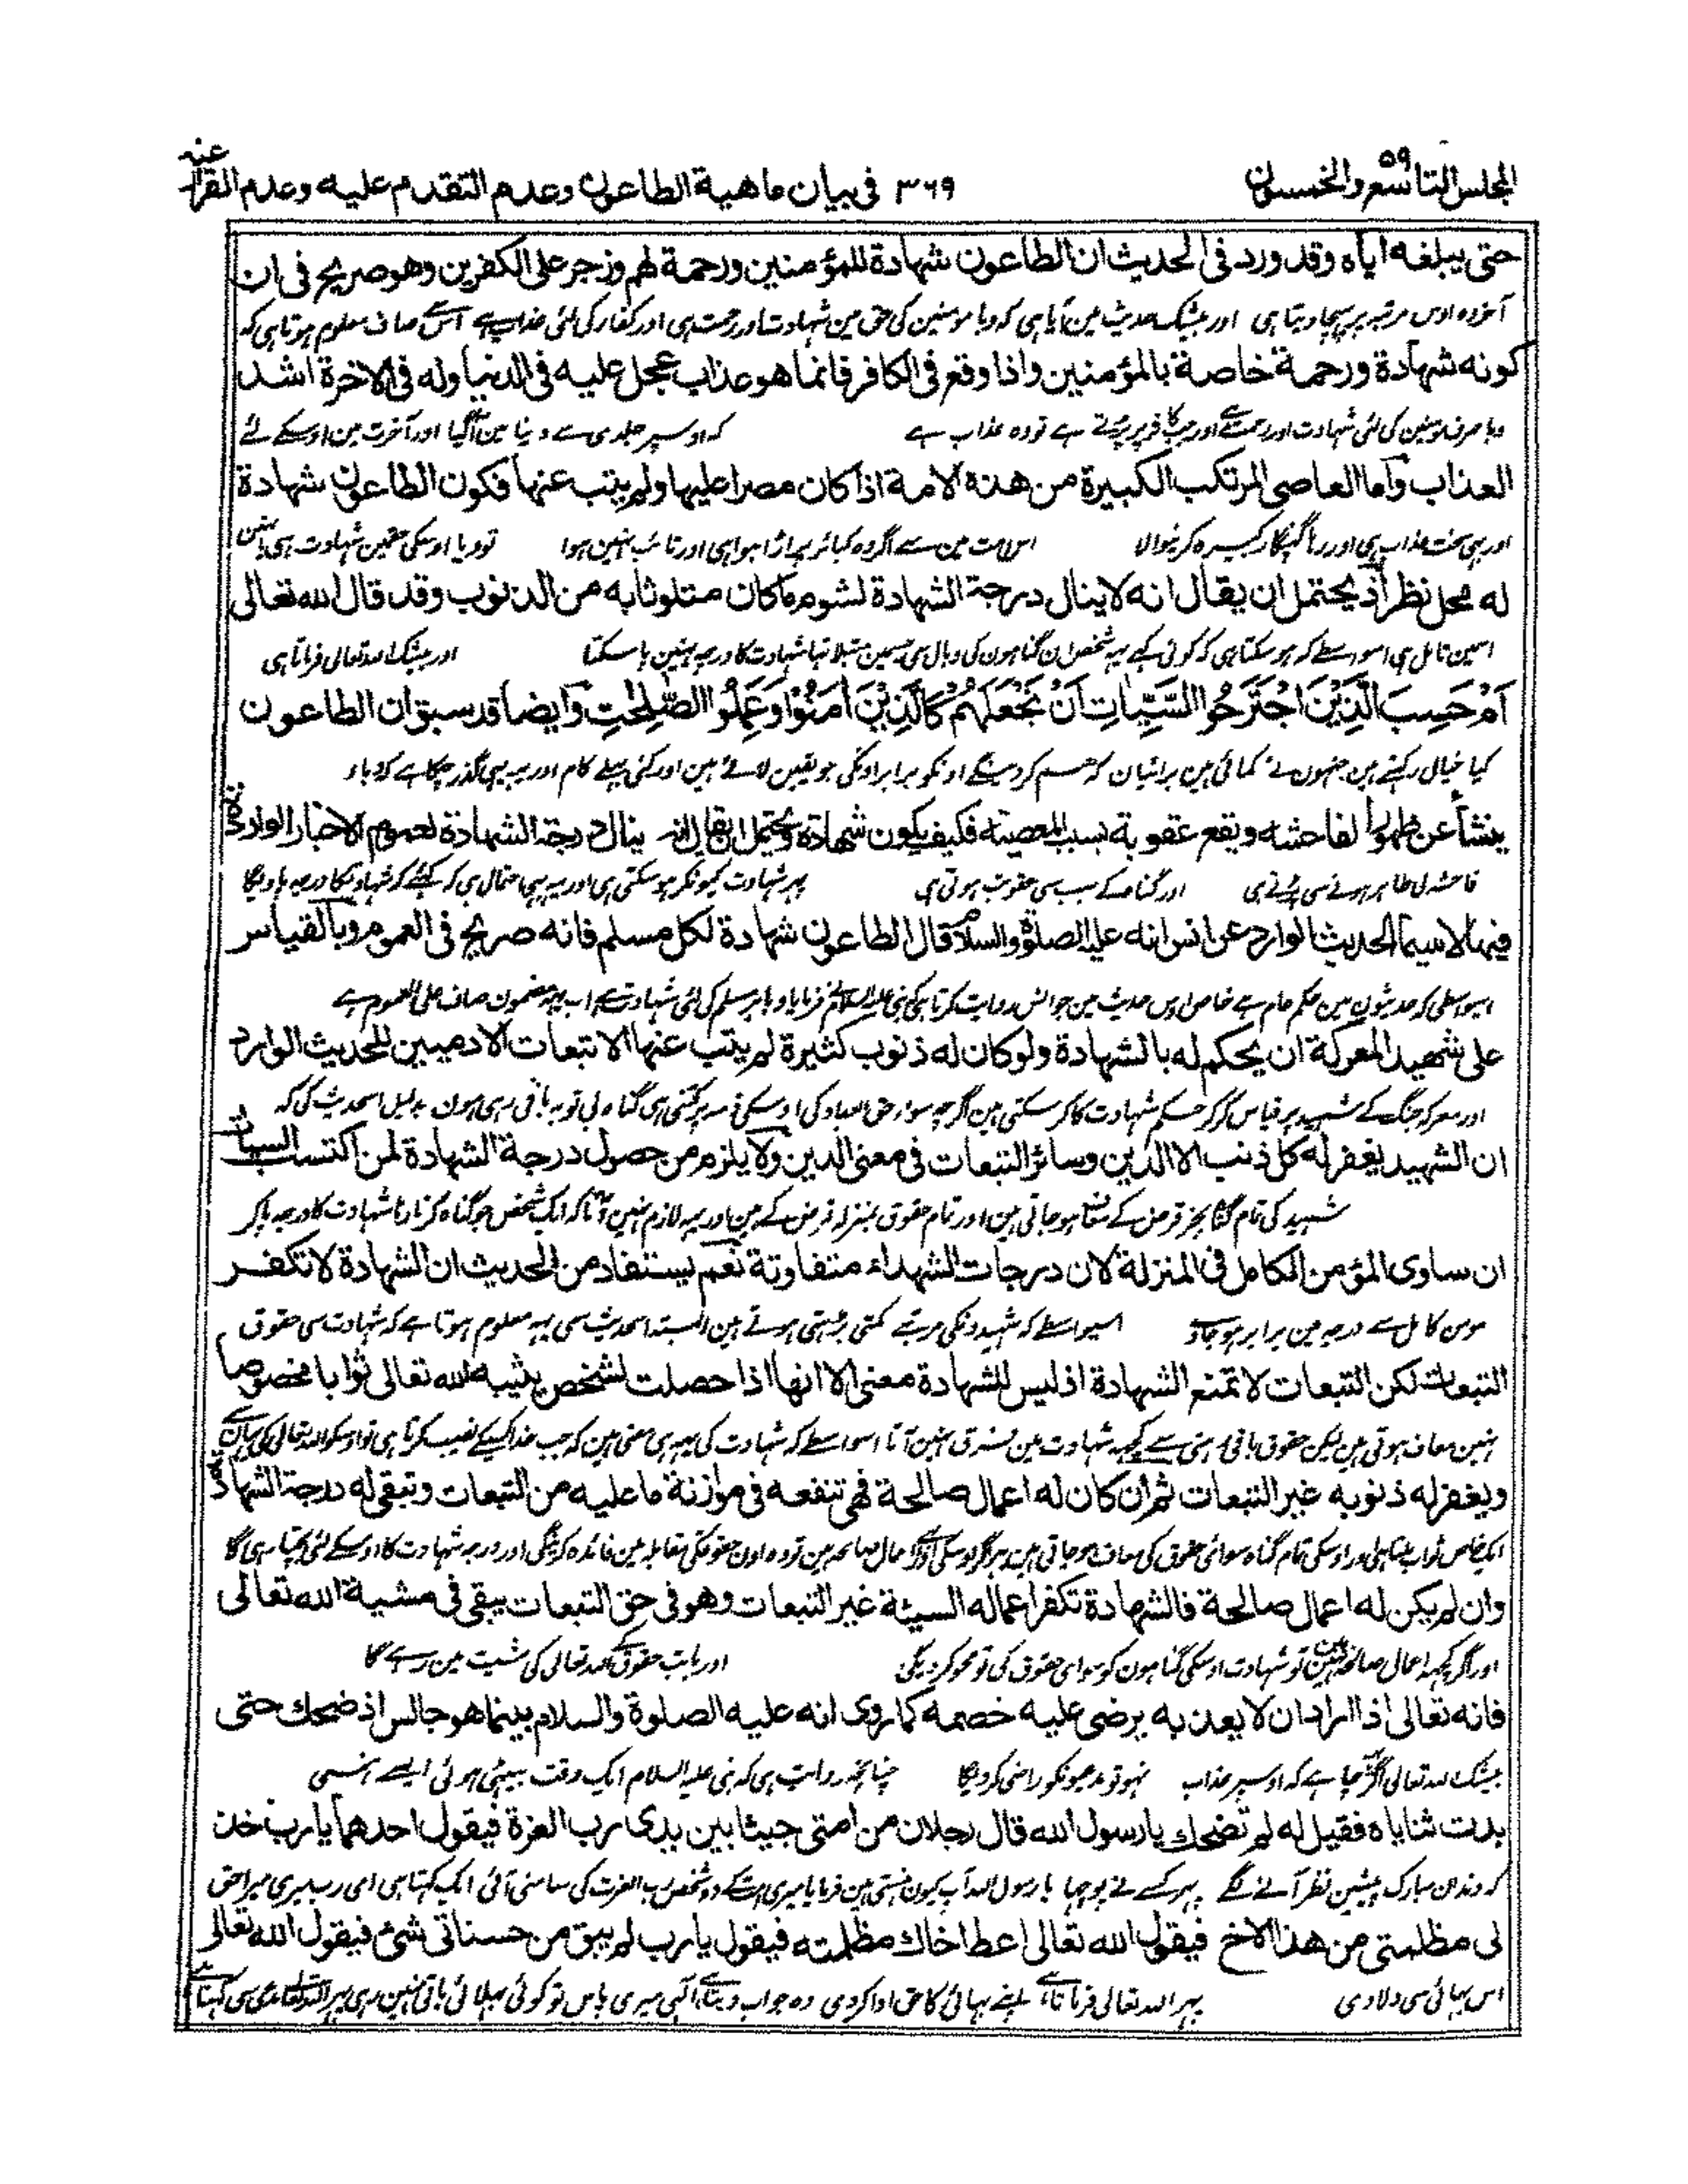 المجلس التاسع والخمسون ٥٩
٣٦٩ فی بیان ماهیة الطاعون وعدم التقدم علیه وعدم الفرار عنه
حتى یبلغه ایاه وقد ورد فی الحدیث ان الطاعون شهادة للمؤمنین ورحمة لهم وزجر على الکفرین وهو صریح فی ان
آخر وہ اوس مرتبہ پر پہنچا دیتا ہی اور بیشک حدیث مین آیا ہی کہ وبا مومنین کی حق مین شہادت اور رحمت ہی اور کفار کی لئی عذاب ہے اس سے صاف معلوم ہوتا ہی کہ
کونه شهادة ورحمة خاصة بالمؤمنین واذا وقع فی الکافر فانما هو عذاب عجل علیه فی الدنیا وله فی الاخرة اشد
وبا صرف مومنین کی لئی شہادت اور رحمت ہے اور جب کافر پر پڑتے ہے تو وہ عذاب ہے کہ اوسپر جلدی سے دنیا مین آگیا اور آخرت مین اوسکے لئے
العذاب واما العاصی المرتکب الکبیرة من هذه الامة اذا کان مصرا علیها ولم یتب عنها فکون الطاعون شهادة
اور بہی سخت عذاب ہی اور رہا گنہگار کبیرہ کرنیوالا اس امت مین سے اگر وہ کبائر پر اڑا ہوا ہی اور تائب نہین ہوا تو وبا اوسکی حقمین شہادت ہی یا نہین
له محل نظر اذ یحتمل ان یقال انه لا ینال درجة الشهادة لشوم ما کان متلوثا به من الذنوب وقد قال الله تعالى
اسمین تامل ہی اسواسطے کہ ہو سکتا ہی کہ کوئی کہے یہ شخص ان گناہون کی وبال سی جسمین مبتلا تہا شہادت کا درجہ نہین پا سکتا اور بیشک اللہ تعالی فرماتا ہی
اَمْ حَسِبَ الَّذِیْنَ اجْتَرَحُوا السَّیِّاٰتِ اَنْ نَجْعَلَهُمْ کَالَّذِیْنَ اٰمَنُوْا وَعَمِلُوا الصّٰلِحٰتِ وایضا قد سبق ان الطاعون
کیا خیال رکہتے ہین جنہون نے کمائی ہین برائیان کہ ہم کردینگے اونکو برابر اونکی جو یقین لائے ہین اور کئی بہلے کام اور یہ بہی گذر چکا ہے کہ وباء
ینشأ عن ظهور الفاحشة ویقع عقوبة بسبب المعصیة فکیف یکون شهادة ویحتمل ان یقال انه ینال درجة الشهادة لعموم الاخبار الواردة
فاحشہ کی ظاہر ہونے سی پڑتے ہی اور گناہ کے سبب سی عقوبت ہوتی ہی پہر شہادت کیونکر ہوسکتی ہی اور یہ بہی احتمال ہی کہ کہئے کہ شہادتکا درجہ پاویگا
فیها لاسیما الحدیث الوارد عن انس انه علیه الصلوة والسلام قال الطاعون شهادة لکل مسلم فانه صریح فی العموم وبالقیاس
اسواسطی کہ حدیثون مین حکم عام ہے خاص اوس حدیث مین جو انس روایت کرتا ہی کہ نبی علیہ السلام نے فرمایا وبا ہر مسلم کی لئی شہادت ہے اب یہ مضمون صاف علی العموم ہے
على شهید المعرکة ان یحکم له بالشهادة ولو کان له ذنوب کثیرة لم یتب عنها الا تبعات الادمیین للحدیث الوارد
اور معرکہ جنگ کے شہید پر قیاس کر کر حکم شہادت کا کر سکتی ہین اگرچہ سوار حق العباد کی اوسکی ذمہ پر کتنی ہی گناہ بی توبہ باقی رہی ہون بدلیل اسحدیث کی کہ
ان الشهید یغفر له کل ذنب الا الدین وسائر التبعات فی معنى الدین ولا یلزم من حصول درجة الشهادة لمن اکتسب السیئات
شہید کی تمام گناہ بجز قرض کے معاف ہو جاتی ہین اور تمام حقوق بمنزلہ قرض کے ہین اور یہ لازم نہین آتا کہ ایک شخص جو گناہ کرتا رہا شہادت کا درجہ پا کر
ان ساوى المؤمن الکامل فی المنزلة لان درجات الشهداء متفاوتة نعم یستفاد من الحدیث ان الشهادة لا تکفر
مومن کامل سے درجہ مین برابر ہو جاوے اسیواسطے کہ شہیدونکی مرتبے کمتی بڑہتی ہوتے ہین البتہ اسحدیث سی یہ معلوم ہوتا ہے کہ شہادت سی حقوق
التبعات لکن التبعات لا تمنع الشهادة اذ لیس للشهادة معنى الا انها اذا حصلت لشخص یثیبه الله تعالى ثوابا مخصوصا
نہین معاف ہوتی ہین لیکن حقوق باقی رہنی سے کچہہ شہادت مین فرق نہین آتا اسواسطے کہ شہادت کی یہی معنی ہین کہ جب خدا کسیکے نصیب کرتا ہی تو اوسکو اللہ تعالی کی یہان سے
ویغفر له ذنوبه غیر التبعات ثم ان کان له اعمال صالحة فهی تنفعه فی موازنة ما علیه من التبعات وتبقى له درجة الشهادة
ایک خاص ثواب ملتا ہی اور اوسکی تمام گناہ سوائی حقوق کی معاف ہو جاتی ہین پہر اگر اوسکی اعمال صالحہ ہین تو وہ اون حقوقکی مقابلہ مین فائدہ کرینگی اور درجہ شہادت کا اوسکے لئی بچتا رہی گا
وان لم یکن له اعمال صالحة فالشهادة تکفر اعماله السیئة غیر التبعات وهو فی حق التبعات یبقى فی مشیة الله تعالى
اور اگر کچہہ اعمال صالحہ نہین تو شہادت اوسکی گناہون کو سوای حقوق کی تو محو کردیگی اور بابت حقوق کے اللہ تعالی کی مشیت مین رہے گا
فانه تعالى اذا اراد ان لا یعذبه یرضی علیه خصمه کما روی انه علیه الصلوة والسلام بینما هو جالس اذ ضحک حتى
بیشک اللہ تعالی اگر چاہے کہ اوسپر عذاب نہو تو مدعیونکو راضی کردیگا چنانچہ روایت ہی کہ نبی علیہ السلام ایک وقت بیٹہی ہوئی ایسے ہنسی
بدت ثنایاه فقیل له لم تضحک یا رسول الله قال رجلان من امتی جیثا بین یدی رب العزة فیقول احدهما یا رب خذ
کہ دندان مبارک پیشین نظر آنے لگے پہر کسے نے پوچہا یا رسول اللہ آپ کیون ہنستی ہین فرمایا میری امت کے دو شخص رب العزت کی سامنی آئی ایک کہتا ہی ای رب میری میرا حق
لی مظلمتی من هذا الاخ فیقول الله تعالى اعط اخاک مظلمته فیقول یا رب لم یبق من حسناتی شئ فیقول الله تعالى
اس بہائی سی دلا دی پہر اللہ تعالی فرماتا ہے اپنے بہائی کا حق ادا کر دی وہ جواب دیتا ہے الہی میری پاس تو کوئی بہلائی باقی نہین رہی پہر اللہ تعالی مدعی سی کہتا ہے